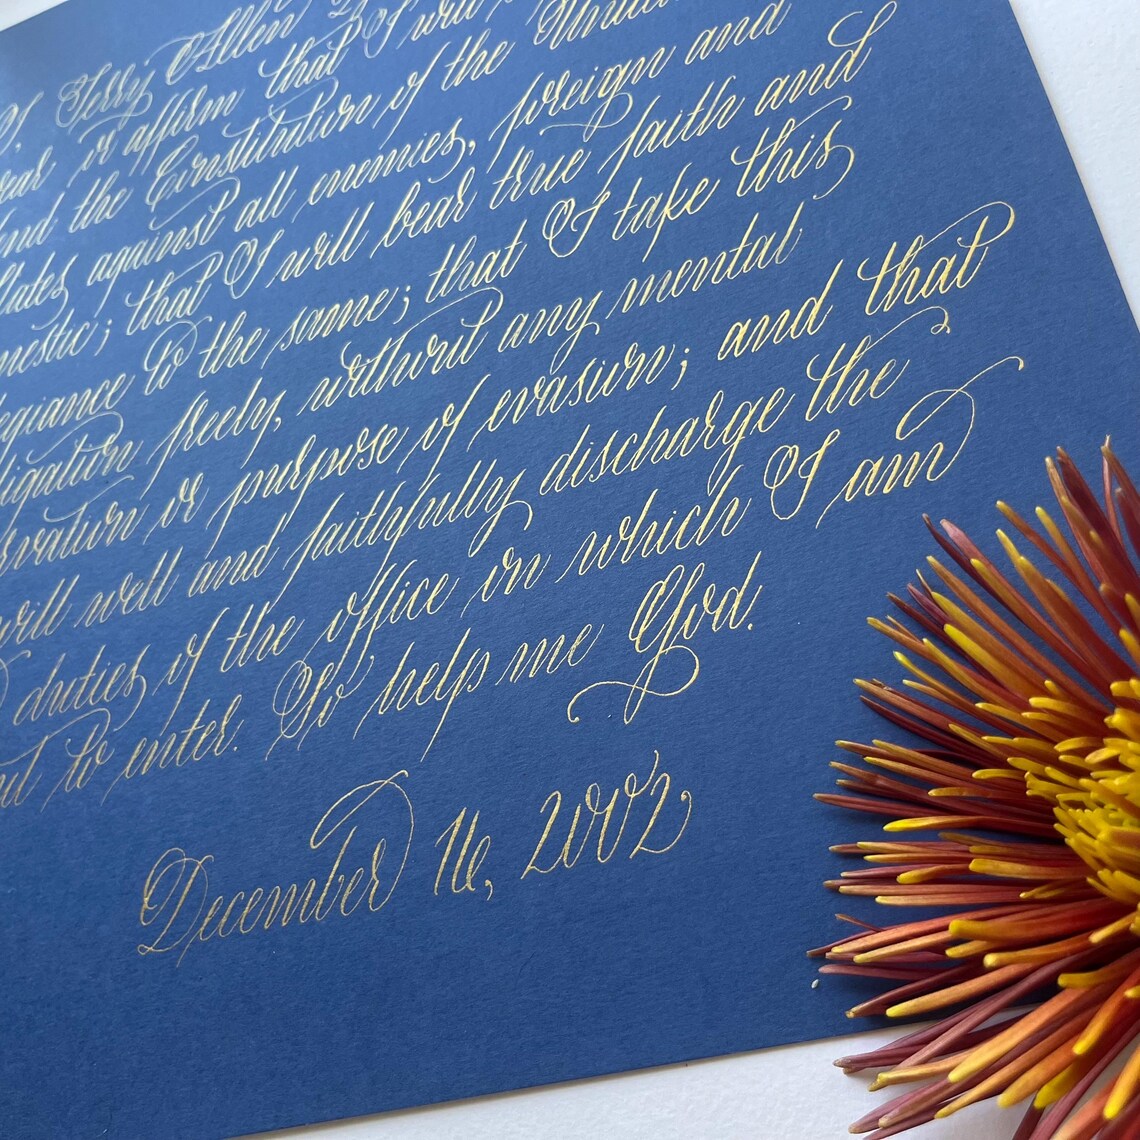 I, Terry Allen
or affirm that I will
the Constitution of the United
against all enemies, foreign and
that I will bear true faith and
to the same; that I take this
freely, without any mental
or purpose of evasion; and that
will well and faithfully discharge the
duties of the office in which I am
to enter. So help me God.
December 16, 2002